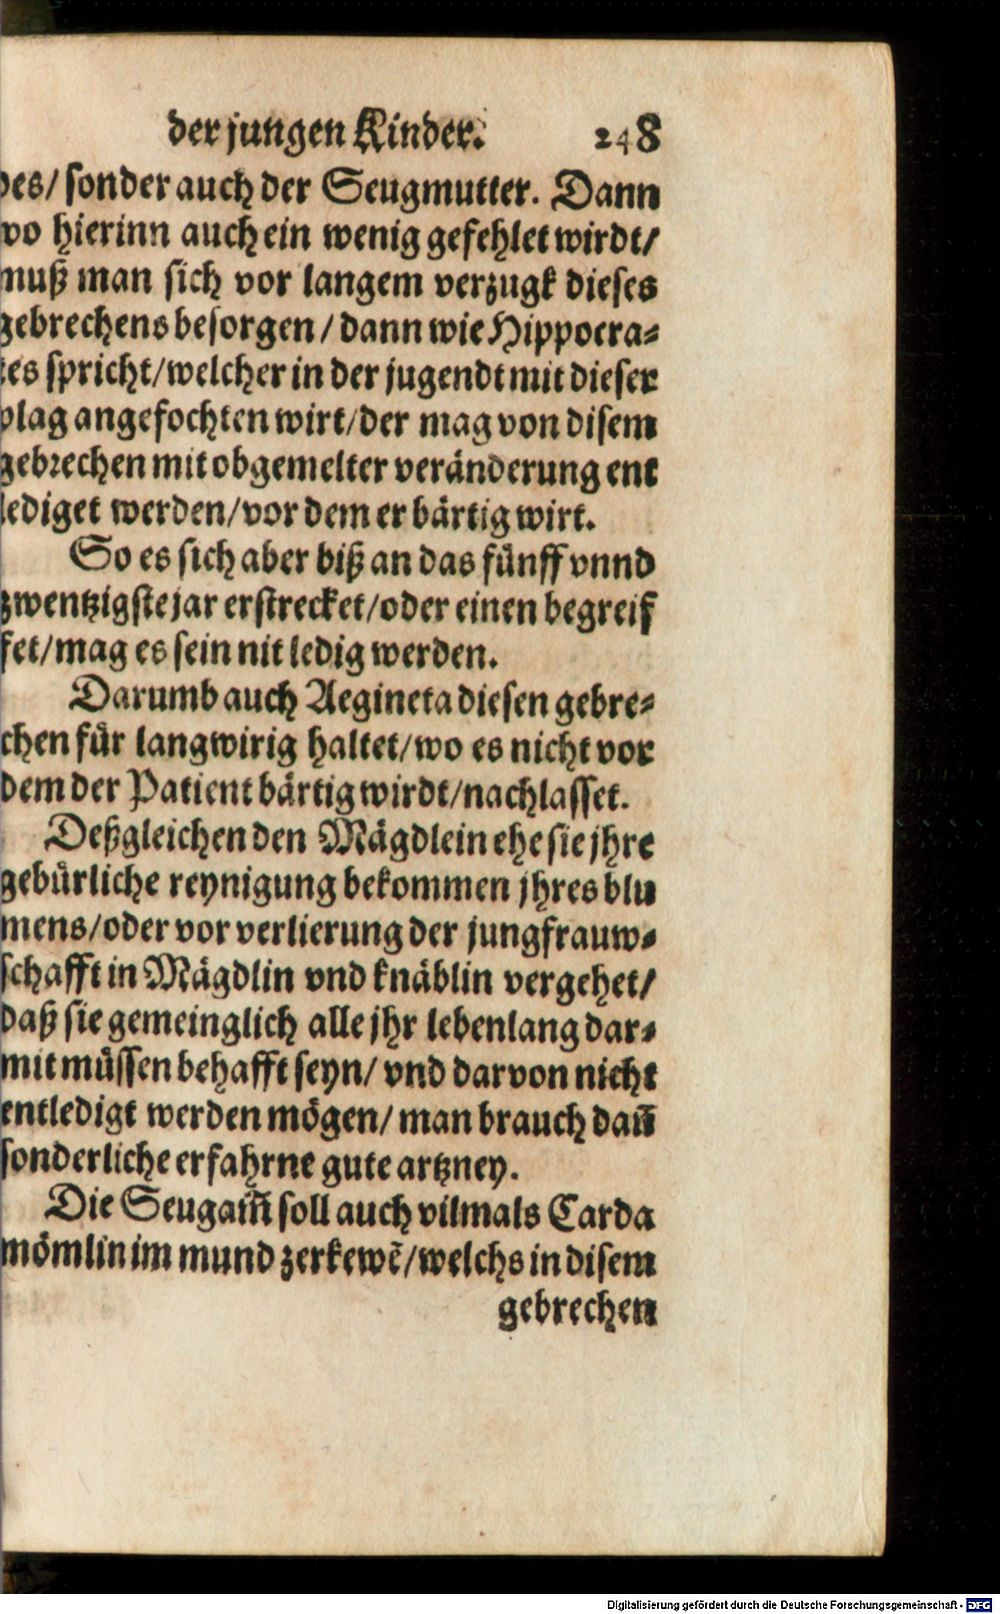 der jungen Kinder. 248
des/ sonder auch der Seugmutter. Dann
wo hierinn auch ein wenig gefehlet wirdt/
muß man sich vor langem verzugk dieses
gebrechens besorgen/ dann wie Hippocra-
tes spricht/ welcher in der jugendt mit dieser
plag angefochten wirt/ der mag von disem
gebrechen mit obgemelter veränderung ent
lediget werden/ vor dem er bärtig wirt.
So es sich aber biß an das fünff vnnd
zwentzigste jar erstrecket/ oder einen begreif
fet/ mag es sein nit ledig werden.
Darumb auch Aegineta diesen gebre-
chen für langwirig haltet/ wo es nicht vor
dem der Patient bärtig wirdt/ nachlasset.
Deßgleichen den Mägdlein ehe sie jhre
gebürliche reynigung bekommen jhres blu
mens/ oder vor verlierung der jungfrauw-
schafft in Mägdlin vnd knäblin vergehet/
daß sie gemeinglich alle jhr lebenlang dar-
mit müssen behafft seyn/ vnd darvon nicht
entledigt werden mögen/ man brauch dañ
sonderliche erfahrne gute artzney.
Die Seugam̃ soll auch vilmals Carda
mömlin im mund zerkewẽ/ welchs in disem
gebrechen
Digitalisierung gefördert durch die Deutsche Forschungsgemeinschaft - DFG